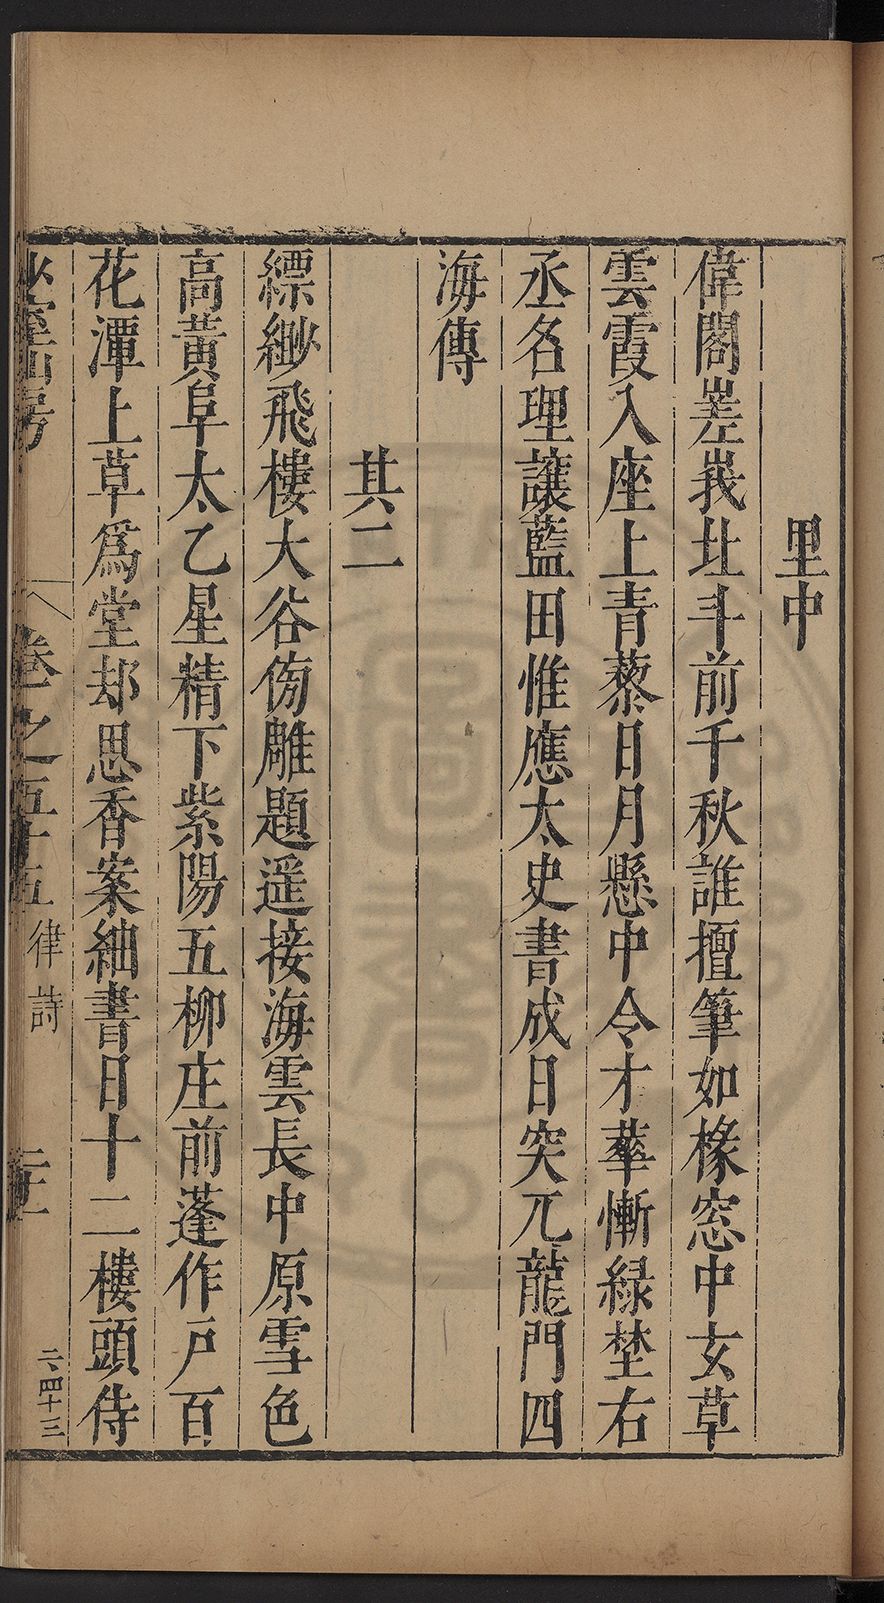 里中
偉閣差峩北斗前千秋誰擅筆如椽窓中玄草
雲霞入座上青藜日月懸中令才華慚緑埜右
丞名理讓藍田惟應太史書成日突兀龍門四
海傳
其二
縹緲飛樓大谷傍雕題遥接海雲長中原雪色
高黃阜太乙星精下紫陽五柳庄前蓬作戶百
花潭上草爲堂却思香案紬書日十二樓頭侍
卷之五十五 律詩
六四十三